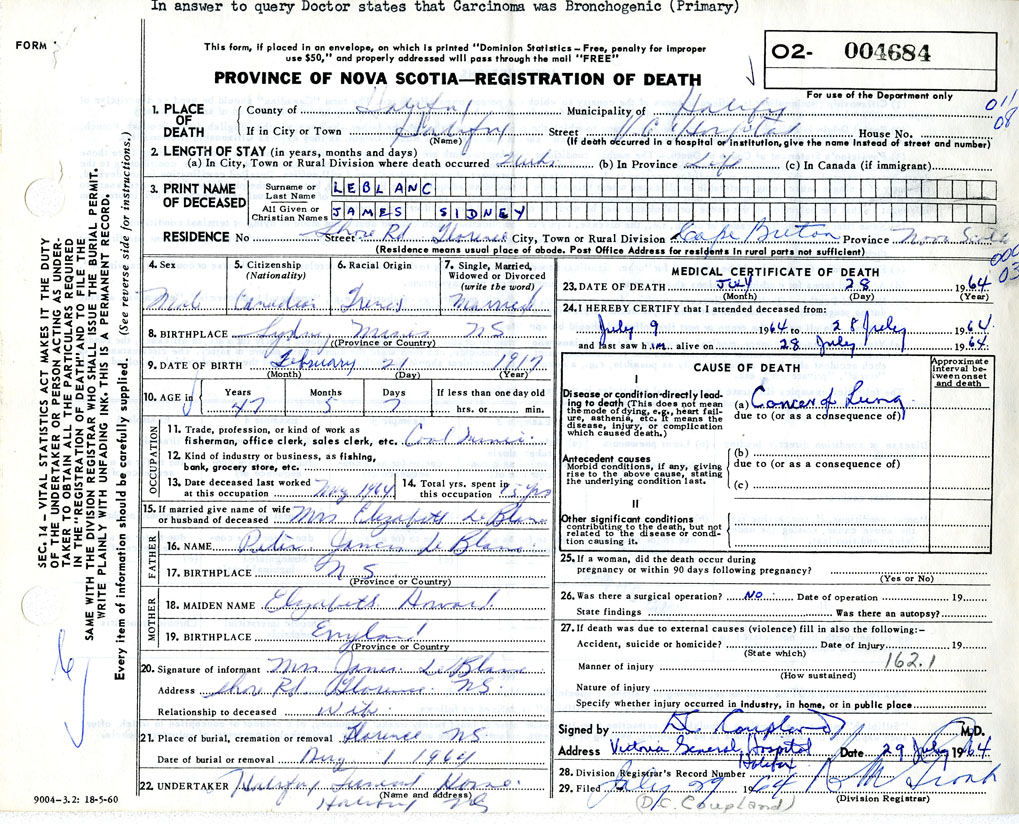 In answer to query Doctor states that Carcinoma was Bronchogenic (Primary)
FORM
This form, if placed in an envelope, on which is printed "Dominion Statistics – Free, penalty for improper
use $50," and properly addressed will pass through the mail "FREE"
PROVINCE OF NOVA SCOTIA—REGISTRATION OF DEATH
O2- 004684
For use of the Department only
011
08
1. PLACE OF DEATH
County of Halifax Municipality of Halifax
If in City or Town Halifax Street V.G. Hospital House No.
(Name) (If death occurred in a hospital or institution, give the name instead of street and number)
2. LENGTH OF STAY (in years, months and days)
(a) In City, Town or Rural Division where death occurred 2 wks (b) In Province Life (c) In Canada (if immigrant)
3. PRINT NAME OF DECEASED
Surname or Last Name LEBLANC
All Given or Christian Names JAMES SIDNEY
RESIDENCE No Street Shore Rd. Florence City, Town or Rural Division Cape Breton Province Nova Scotia
(Residence means usual place of abode. Post Office Address for residents in rural parts not sufficient)
4. Sex Male
5. Citizenship (Nationality) Canadian
6. Racial Origin French
7. Single, Married, Widowed or Divorced (write the word) Married
8. BIRTHPLACE Sydney Mines NS
(Province or Country)
9. DATE OF BIRTH February 21 1917
(Month) (Day) (Year)
10. AGE in Years 47 Months 5 Days 7 If less than one day old hrs. or min.
OCCUPATION
11. Trade, profession, or kind of work as
fisherman, office clerk, sales clerk, etc. Coal Miner
12. Kind of industry or business, as fishing,
bank, grocery store, etc.
13. Date deceased last worked
at this occupation May 1964
14. Total yrs. spent in
this occupation yrs
15. If married give name of wife
or husband of deceased Mrs Elizabeth LeBlanc
FATHER
16. NAME Peter James LeBlanc
17. BIRTHPLACE N.S.
(Province or Country)
MOTHER
18. MAIDEN NAME Elizabeth Howard
19. BIRTHPLACE England
(Province or Country)
20. Signature of informant Mrs James LeBlanc
Address Shore Rd. Florence NS.
Relationship to deceased wife
21. Place of burial, cremation or removal Florence NS
Date of burial or removal Aug 1 1964
22. UNDERTAKER Halifax Funeral Home
(Name and address)
Halifax NS
9004–3.2: 18-5-60
MEDICAL CERTIFICATE OF DEATH
23. DATE OF DEATH JULY 28 1964
(Month) (Day) (Year)
24. I HEREBY CERTIFY that I attended deceased from:
July 9 1964 to 28 July 1964
and last saw him alive on 28 July 1964
CAUSE OF DEATH
Approximate interval between onset and death
I
Disease or condition directly leading to death (This does not mean the mode of dying, e.g., heart failure, asthenia, etc. It means the disease, injury, or complication which caused death.)
(a) Cancer of Lung
due to (or as a consequence of)
Antecedent causes
Morbid conditions, if any, giving rise to the above cause, stating the underlying condition last.
(b)
due to (or as a consequence of)
(c)
II
Other significant conditions
contributing to the death, but not related to the disease or condition causing it.
25. If a woman, did the death occur during
pregnancy or within 90 days following pregnancy?
(Yes or No)
26. Was there a surgical operation? NO. Date of operation 19
State findings Was there an autopsy?
27. If death was due to external causes (violence) fill in also the following:–
Accident, suicide or homicide? Date of injury 19
(State which)
162.1
Manner of injury
(How sustained)
Nature of injury
Specify whether injury occurred in industry, in home, or in public place
Signed by D.C. Coupland M.D.
Address Victoria General Hospital Halifax Date 29 July 1964
28. Division Registrar's Record Number
29. Filed July 29 1964
(Division Registrar)
(D.C. Coupland)
SEC. 14 – VITAL STATISTICS ACT MAKES IT THE DUTY
OF THE UNDERTAKER OR PERSON ACTING AS UNDER-
TAKER TO OBTAIN ALL THE PARTICULARS REQUIRED
IN THE "REGISTRATION OF DEATH" AND TO FILE THE
SAME WITH THE DIVISION REGISTRAR WHO SHALL ISSUE THE BURIAL PERMIT.
WRITE PLAINLY WITH UNFADING INK. THIS IS A PERMANENT RECORD.
Every item of information should be carefully supplied. (See reverse side for instructions.)